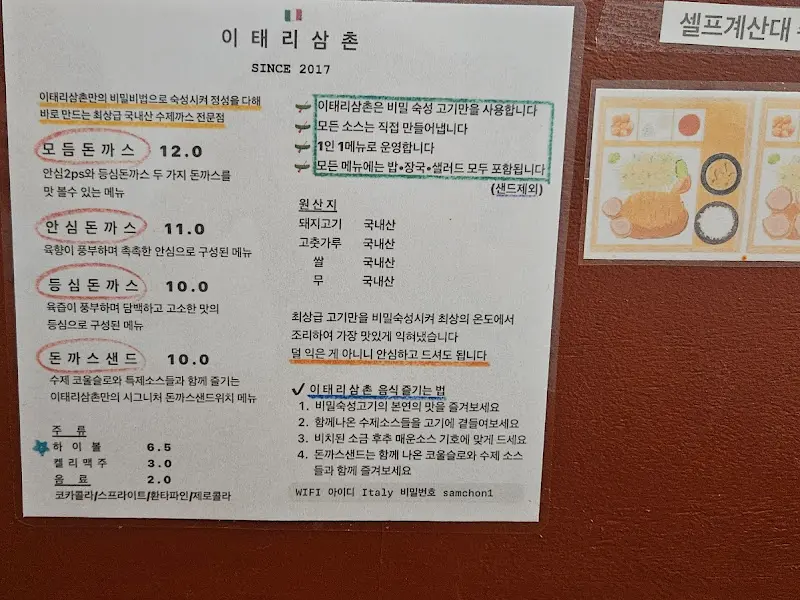 이태리삼촌
SINCE 2017
이태리삼촌만의 비밀비법으로 숙성시켜 정성을 다해
바로 만드는 최상급 국내산 수제까스 전문점
모듬돈까스 12.0
안심2ps와 등심돈까스 두 가지 돈까스를
맛 볼수 있는 메뉴
안심돈까스 11.0
육향이 풍부하며 촉촉한 안심으로 구성된 메뉴
등심돈까스 10.0
육즙이 풍부하며 담백하고 고소한 맛의
등심으로 구성된 메뉴
돈까스샌드 10.0
수제 코울슬로와 특제소스들과 함께 즐기는
이태리삼촌만의 시그니처 돈까스샌드위치 메뉴
주류
하이볼 6.5
켈리맥주 3.0
음료 2.0
코카콜라/스프라이트/환타파인/제로콜라
이태리삼촌은 비밀 숙성 고기만을 사용합니다
모든 소스는 직접 만들어냅니다
1인 1메뉴로 운영합니다
모든 메뉴에는 밥•장국•샐러드 모두 포함됩니다
(샌드제외)
원산지
돼지고기 국내산
고춧가루 국내산
쌀 국내산
무 국내산
최상급 고기만을 비밀숙성시켜 최상의 온도에서
조리하여 가장 맛있게 익혀냈습니다
덜 익은 게 아니니 안심하고 드셔도 됩니다
✓ 이태리삼촌 음식 즐기는 법
1. 비밀숙성고기의 본연의 맛을 즐겨보세요
2. 함께나온 수제소스들을 고기에 곁들여보세요
3. 비치된 소금 후추 매운소스 기호에 맞게 드세요
4. 돈까스샌드는 함께 나온 코울슬로와 수제 소스
들과 함께 즐겨보세요
WIFI 아이디 Italy 비밀번호 samchon1
셀프계산대